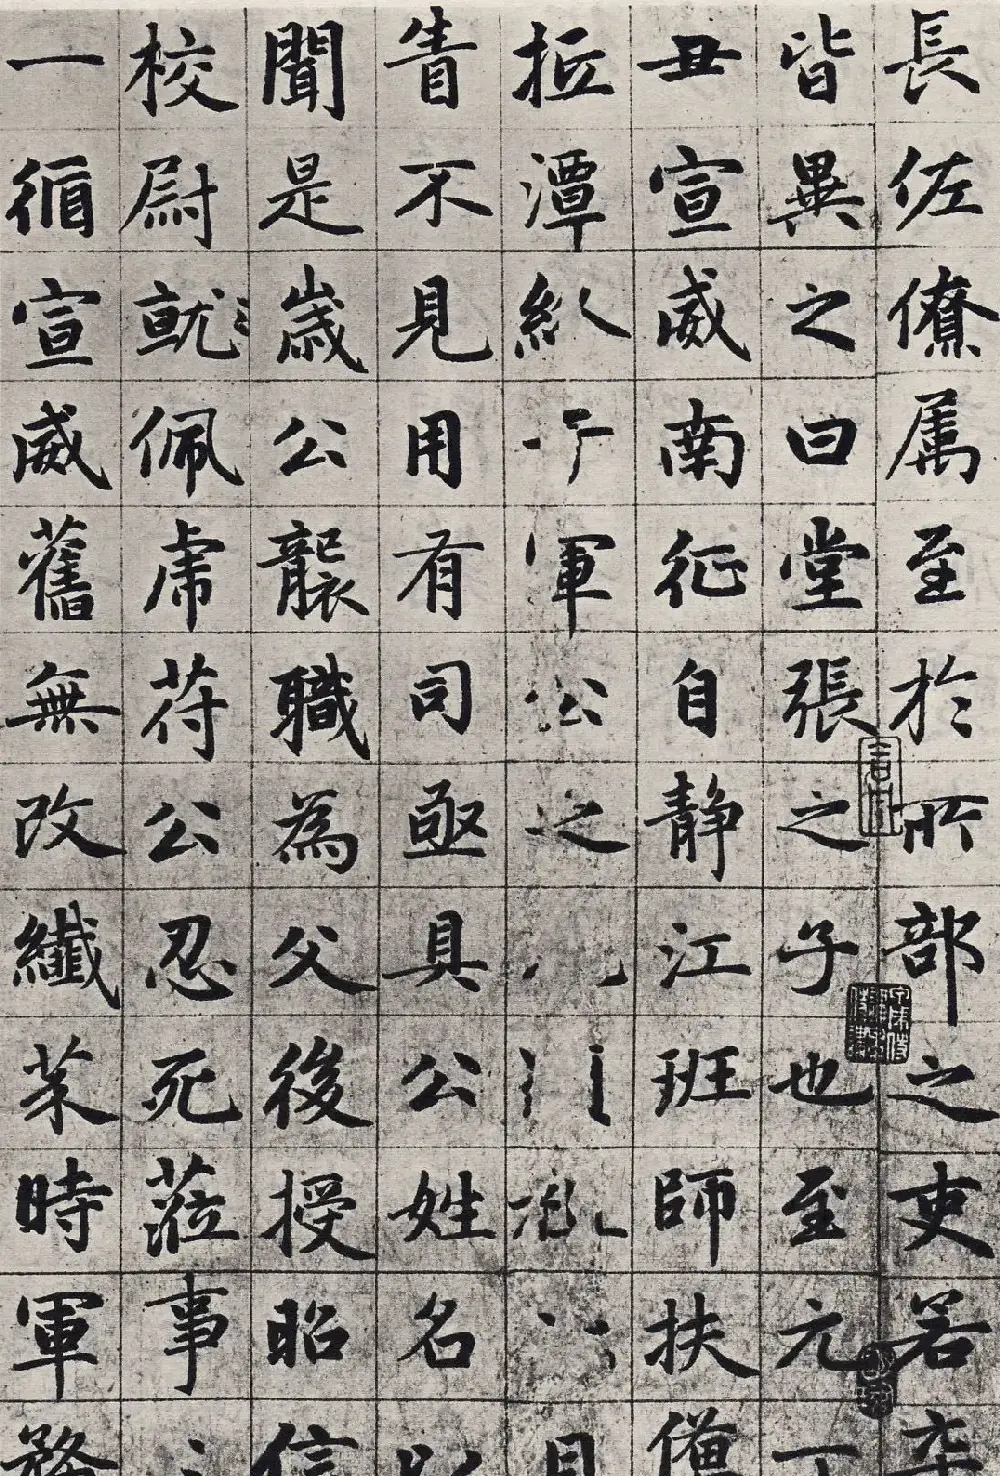 長佐僚属至於所部之吏若卒
皆異之曰堂張之子也至元丁
丑宣威南征自静江班師扶
拒潭 軍公之
眚不見用有司亟具公姓名以
聞是歲公襲職為父後授昭信
校尉就佩虎符公忍死蒞事
一循宣威舊無改纖芥時軍務